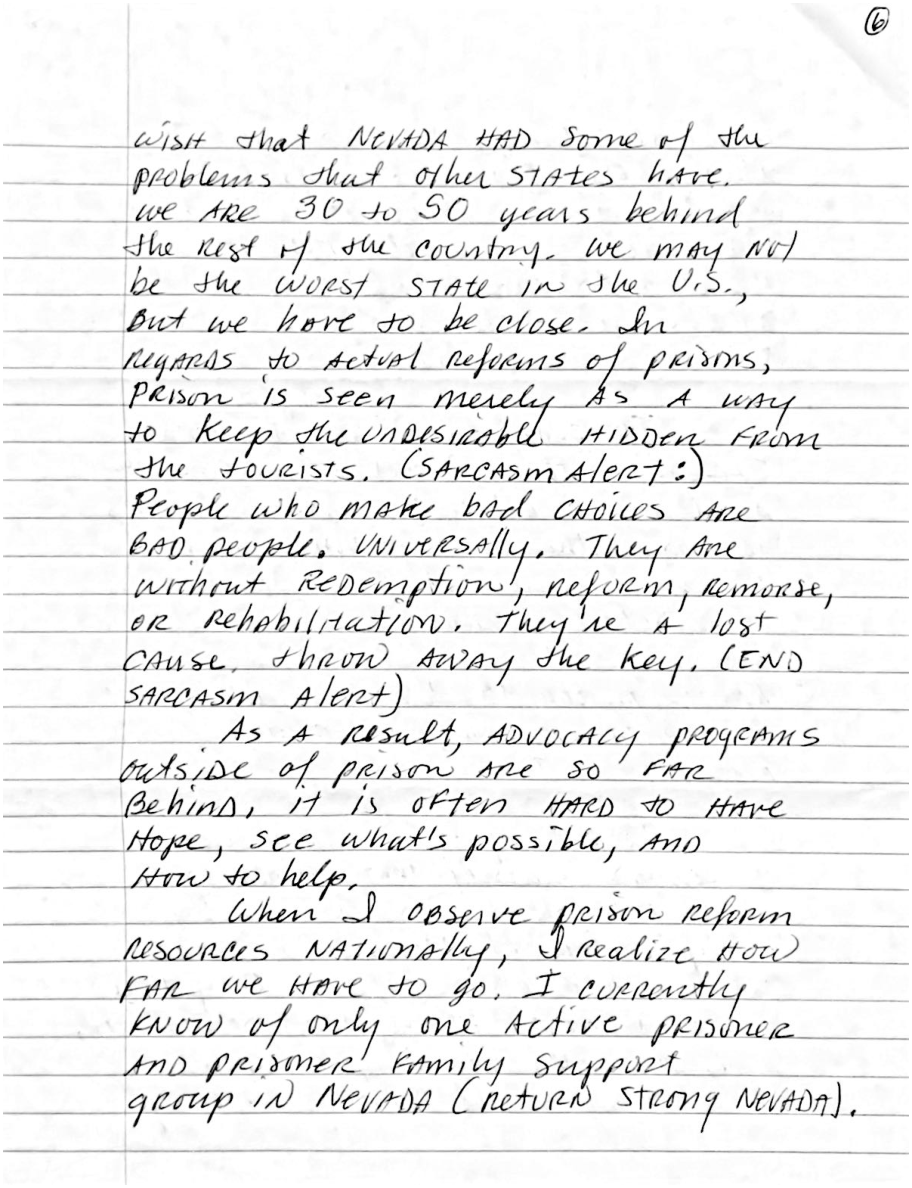 6
wish that NEVADA HAD some of the
problems that other STATES HAVE.
we ARE 30 to 50 years behind
the Rest of the country. we may Not
be the WORST STATE IN the U.S.,
But we have to be close. In
regards to actual reforms of prisons,
Prison is seen merely AS A WAY
to keep the UNDESIRABLE HIDDEN FROM
the tourists. (SARCASM Alert:)
People who make bad CHOICES ARE
BAD people. UNIVERSAlly. They Are
without REDemption, reform, remorse,
OR Rehabilitation. They're A lost
CAUSE. throw AWAY the key. (END
SARCASM Alert)
As A Result, ADVOCACY PROGRAMS
outside of prison ARE so FAR
BehIND, it is often HARD to HAVE
Hope, see what's possible, AND
How to help.
When I OBSERVE prison reform
RESOURCES NATIONAlly, I Realize How
FAR we HAVE to go. I currently
KNOW of only one Active prisoner
AND prisoner FAMily support
group IN NEVADA (RETURN STRONG NEVADA).